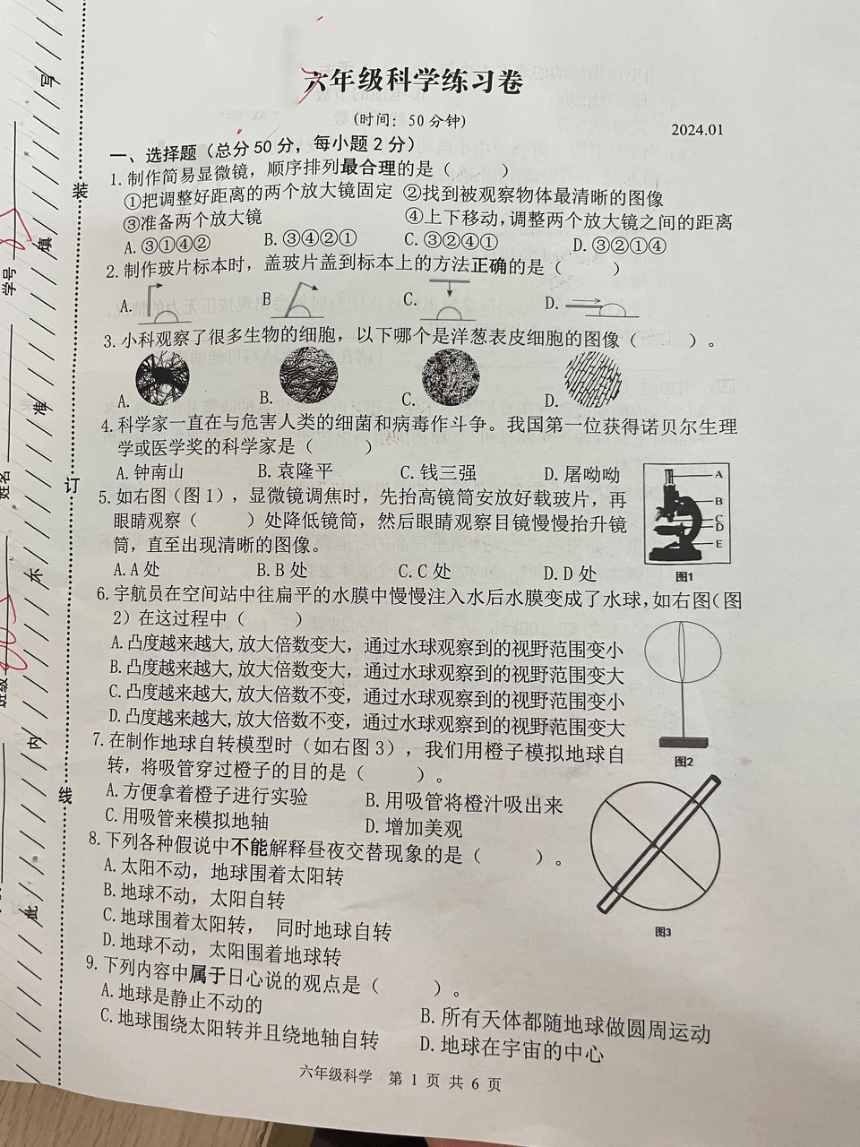 六年级科学练习卷
(时间：50分钟)
2024.01
一、选择题（总分50分，每小题2分）
1.制作简易显微镜，顺序排列最合理的是（　　）
①把调整好距离的两个放大镜固定 ②找到被观察物体最清晰的图像
③准备两个放大镜 ④上下移动，调整两个放大镜之间的距离
A.③①④② B.③④②① C.③②④① D.③②①④
2.制作玻片标本时，盖玻片盖到标本上的方法正确的是（　　）
A. B C. D.
3.小科观察了很多生物的细胞，以下哪个是洋葱表皮细胞的图像（　　）。
A. B. C. D.
4.科学家一直在与危害人类的细菌和病毒作斗争。我国第一位获得诺贝尔生理
学或医学奖的科学家是（　　）
A.钟南山 B.袁隆平 C.钱三强 D.屠呦呦
5.如右图（图1），显微镜调焦时，先抬高镜筒安放好载玻片，再
眼睛观察（　　）处降低镜筒，然后眼睛观察目镜慢慢抬升镜
筒，直至出现清晰的图像。
A.A处 B.B处 C.C处 D.D处
A
B
C
D
E
图1
6.宇航员在空间站中往扁平的水膜中慢慢注入水后水膜变成了水球，如右图（图
2）在这过程中（　　）
A.凸度越来越大，放大倍数变大，通过水球观察到的视野范围变小
B.凸度越来越大，放大倍数变大，通过水球观察到的视野范围变大
C.凸度越来越大，放大倍数不变，通过水球观察到的视野范围变小
D.凸度越来越大，放大倍数不变，通过水球观察到的视野范围变大
图2
7.在制作地球自转模型时（如右图3），我们用橙子模拟地球自
转，将吸管穿过橙子的目的是（　　）。
A.方便拿着橙子进行实验 B.用吸管将橙汁吸出来
C.用吸管来模拟地轴 D.增加美观
8.下列各种假说中不能解释昼夜交替现象的是（　　）。
A.太阳不动，地球围着太阳转
B.地球不动，太阳自转
C.地球围着太阳转， 同时地球自转
D.地球不动，太阳围着地球转
图3
9.下列内容中属于日心说的观点是（　　）。
A.地球是静止不动的 B.所有天体都随地球做圆周运动
C.地球围绕太阳转并且绕地轴自转 D.地球在宇宙的中心
六年级科学 第 1 页 共 6 页
写
装
填
学号
准
订
姓名
不
班级
内
线
此